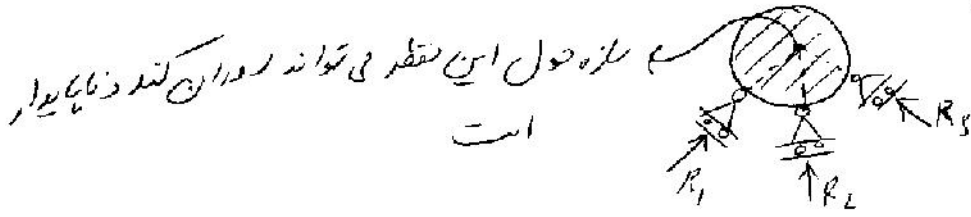 سازه حول این نقطه می تواند دوران کند و ناپایدار
است
R₁
R₂
R₃